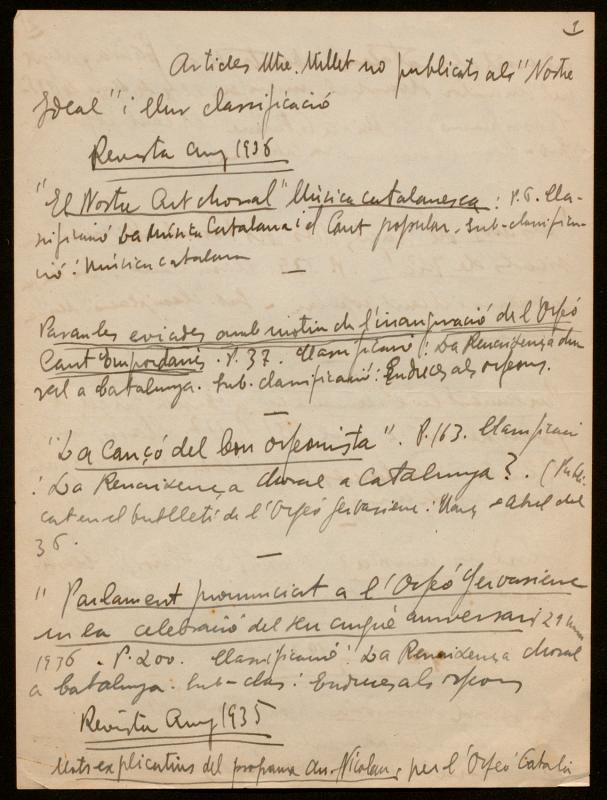 1
Articles Mtre. Millet no publicats als "Nostre
Ideal" i llur classificació
Revista any 1936
"El Nostre Art choral" Música catalanesca : P. 6. Cla-
sificació La Música Catalana i el Cant popular. Sub-classifica-
ció : Música catalana
Paraules enviades amb motiu de l'inauguració de l'Orfeó
Cant Empordanès. P. 37. Classificació : La Renaixença cho-
ral a Catalunya. Sub-classificació : Endreces als orfeons.
"La cançó del bon orfeonista". P. 163. Classificació
: La Renaixença choral a Catalunya ?. (Publi-
cat en el butlletí de l'Orfeó Gervasienc : Març e Abril del
36.
" Parlament pronunciat a l'Orfeó Gervasienc
en la celebració del seu cinquè aniversari 29
1936. P. 200. Classificació : La Renaixença choral
a Catalunya. Sub-clas : Endreces als orfeons
Revista Any 1935
Mots explicatius del programa per l'Orfeó Català